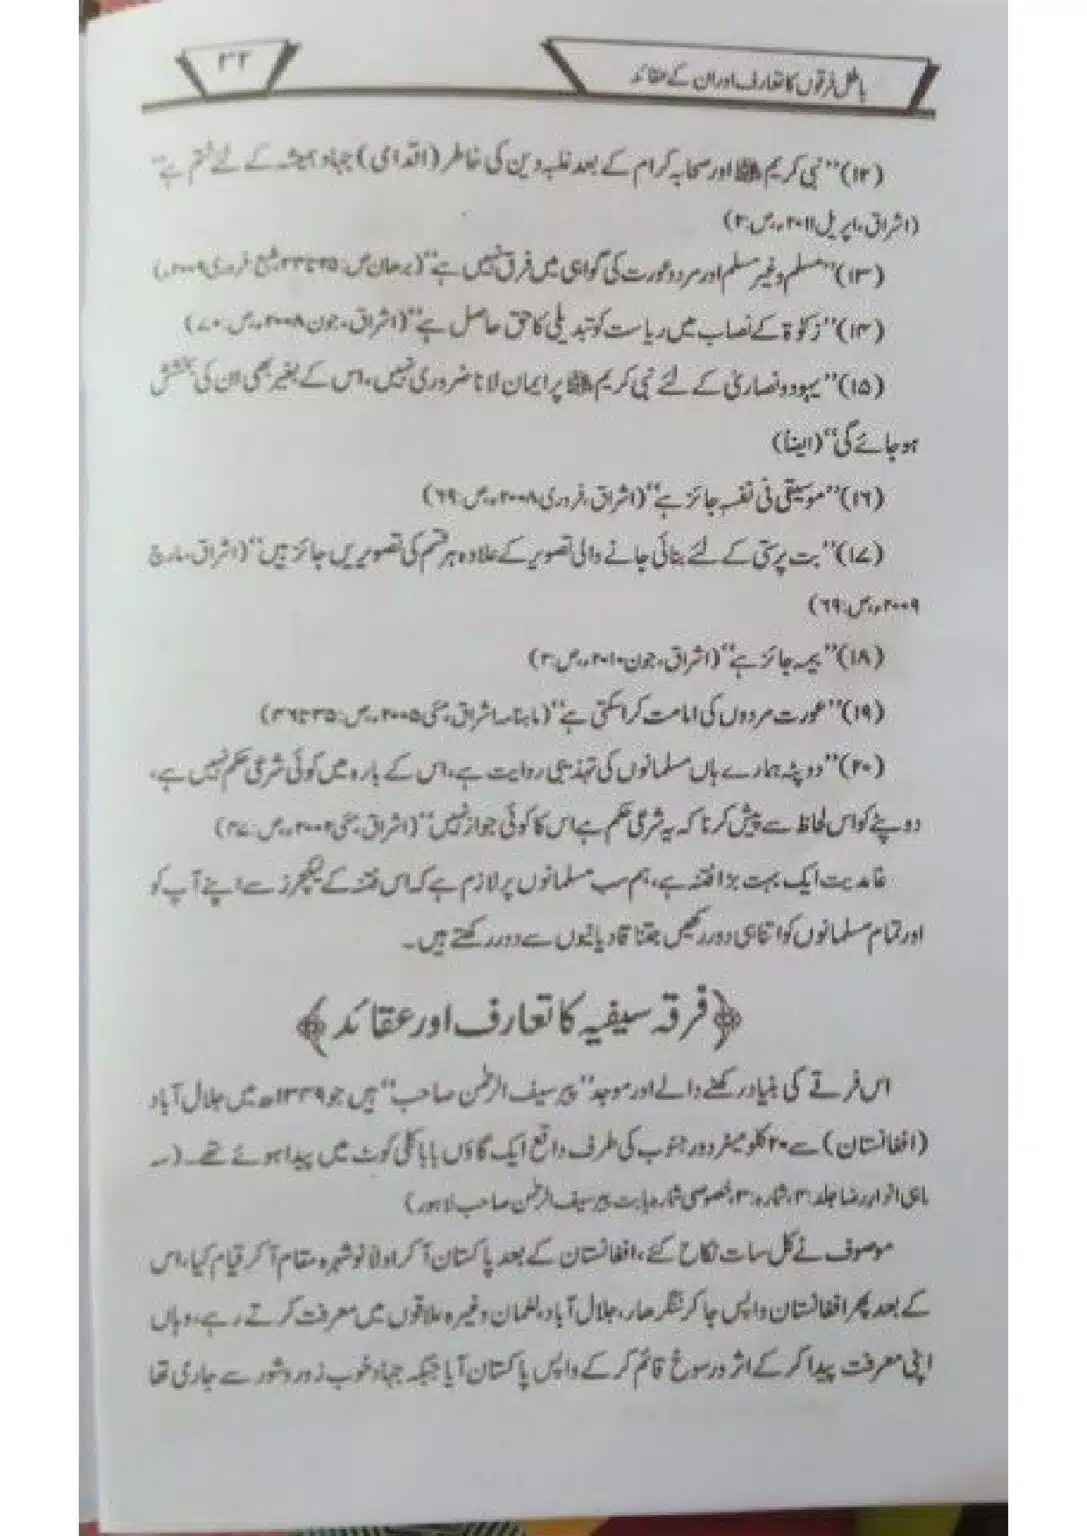 باطل فرقوں کا تعارف اور ان کے عقائد
۳۲
(۱۲)”نبی کریم ﷺ اور صحابہ کرام کے بعد غلبہ دین کی خاطر (اقدامی) جہاد ہمیشہ کے لئے ختم ہے“
(اشراق، اپریل ۲۰۱۱ء، ص:۲)
(۱۳)”مسلم وغیر مسلم اور مرد وعورت کی گواہی میں فرق نہیں ہے“ (برھان ص: ۲۵ تا ۳۴، طبع فروری ۲۰۰۹ء)
(۱۴)”زکوٰۃ کے نصاب میں ریاست کو تبدیلی کا حق حاصل ہے“ (اشراق، جون ۲۰۰۸ء، ص:۷۰)
(۱۵)”یہود ونصاریٰ کے لئے نبی کریم ﷺ پر ایمان لانا ضروری نہیں، اس کے بغیر بھی ان کی بخشش
ہو جائے گی“ (ایضاً)
(۱۶)”موسیقی فی نفسہ جائز ہے“ (اشراق، فروری ۲۰۰۸ء، ص:۶۹)
(۱۷)”بت پرستی کے لئے بنائی جانے والی تصویر کے علاوہ ہر قسم کی تصویریں جائز ہیں“ (اشراق، مارچ
۲۰۰۹ء، ص:۶۹)
(۱۸)”بیمہ جائز ہے“ (اشراق، جون ۲۰۱۰ء، ص:۲)
(۱۹)”عورت مردوں کی امامت کرا سکتی ہے“ (ماہنامہ اشراق، مئی ۲۰۰۵ء، ص:۳۵ تا ۴۶)
(۲۰)”دوپٹہ ہمارے ہاں مسلمانوں کی تہذیبی روایت ہے، اس کے بارہ میں کوئی شرعی حکم نہیں ہے،
دوپٹے کو اس لحاظ سے پیش کرنا کہ یہ شرعی حکم ہے اس کا کوئی جواز نہیں“ (اشراق، مئی ۲۰۰۲ء، ص:۴۷)
غامدیت ایک بہت بڑا فتنہ ہے، ہم سب مسلمانوں پر لازم ہے کہ اس فتنہ کے لیکچرز سے اپنے آپ کو
اور تمام مسلمانوں کو اتنا ہی دور رکھیں جتنا قادیانیوں سے دور رکھتے ہیں۔
﴿فرقہ سیفیہ کا تعارف اور عقائد﴾
اس فرقے کی بنیاد رکھنے والے اور موجد ”پیر سیف الرحمٰن صاحب“ ہیں جو ۱۳۴۹ھ میں جلال آباد
(افغانستان) سے ۲۰ کلومیٹر دور جنوب کی طرف واقع ایک گاؤں بابا کلی کوٹ میں پیدا ہوئے تھے۔ (سہ
ماہی انوار رضا جلد:۳، شمارہ:۳، خصوصی شمارہ بابت پیر سیف الرحمٰن صاحب لاہور)
موصوف نے کل سات نکاح کئے، افغانستان کے بعد پاکستان آکر اولاً نوشہرہ مقام آکر قیام کیا، اس
کے بعد پھر افغانستان واپس جا کر ننگرھار، جلال آباد، لغمان وغیرہ علاقوں میں معرفت کرتے رہے، وہاں
اپنی معرفت پیدا کر کے اثر ورسوخ قائم کر کے واپس پاکستان آیا جبکہ جہاد خوب زور وشور سے جاری تھا